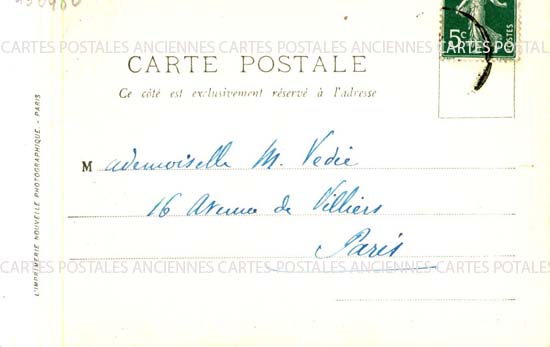 5c
POSTES
CARTES POSTALES ANCIENNES CARTES POSTALES ANCIENNES CARTES POSTALES
CARTE POSTALE
Ce côté est exclusivement réservé à l'adresse
Mademoiselle M. Vedié
16 Avenue de Villiers
Paris
CARTES POSTALES ANCIENNES CARTES POSTALES ANCIENNES CARTES POTALES
L'IMPRIMERIE NOUVELLE PHOTOGRAPHIQUE - PARIS